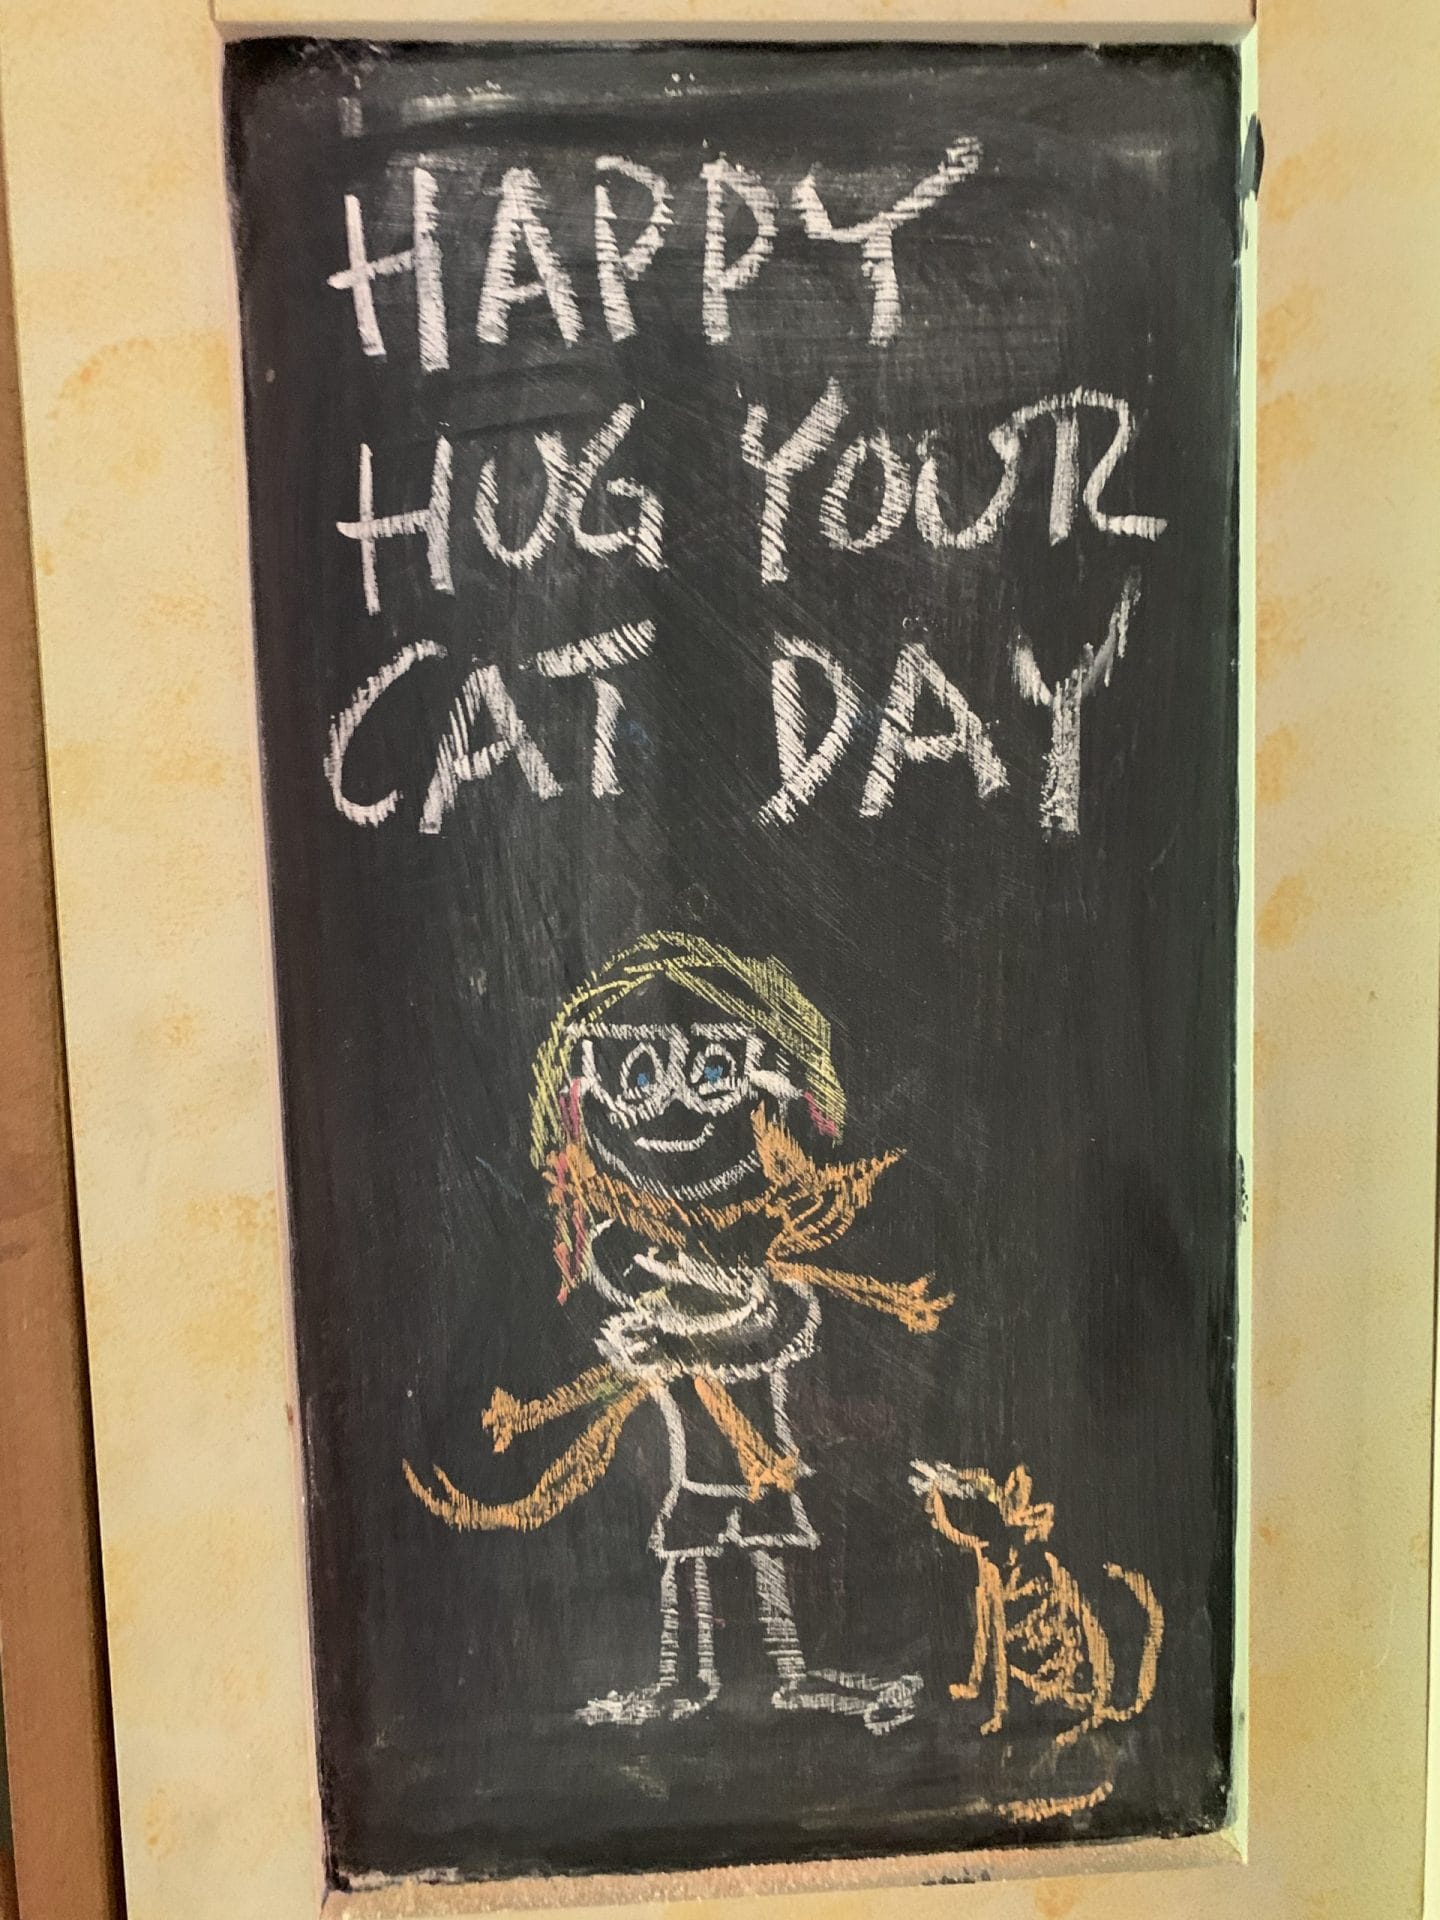 HAPPY
HUG YOUR
CAT DAY